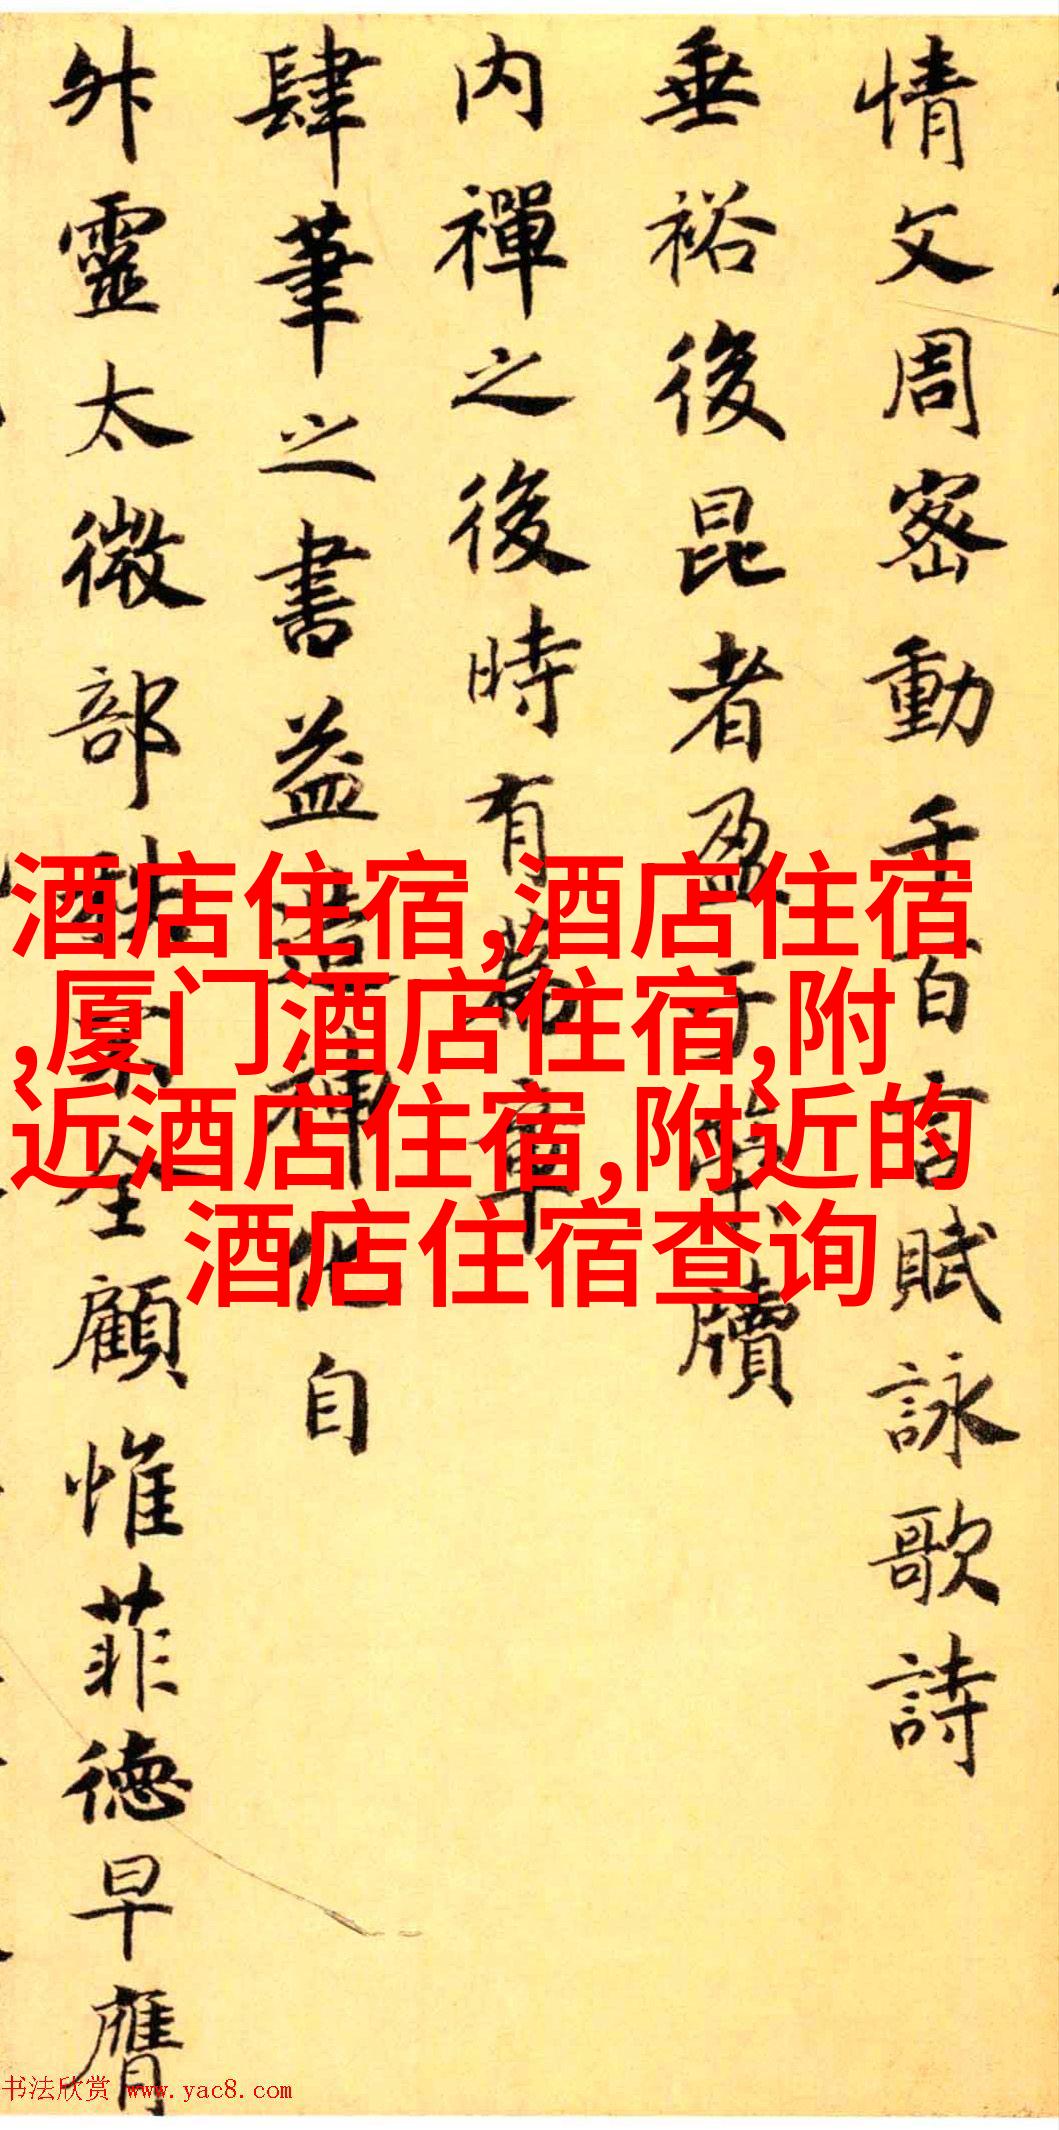 情文周密動千百言賦詠歌詩
垂裕後昆者盈于緗牘
内禪之後時有萬章
肆筆之書益造神化自
升靈太微部秩京全顧惟菲德早膺
酒店住宿,酒店住宿
,厦门酒店住宿,附
近酒店住宿,附近的
酒店住宿查询
书法欣赏 www.yac8.com